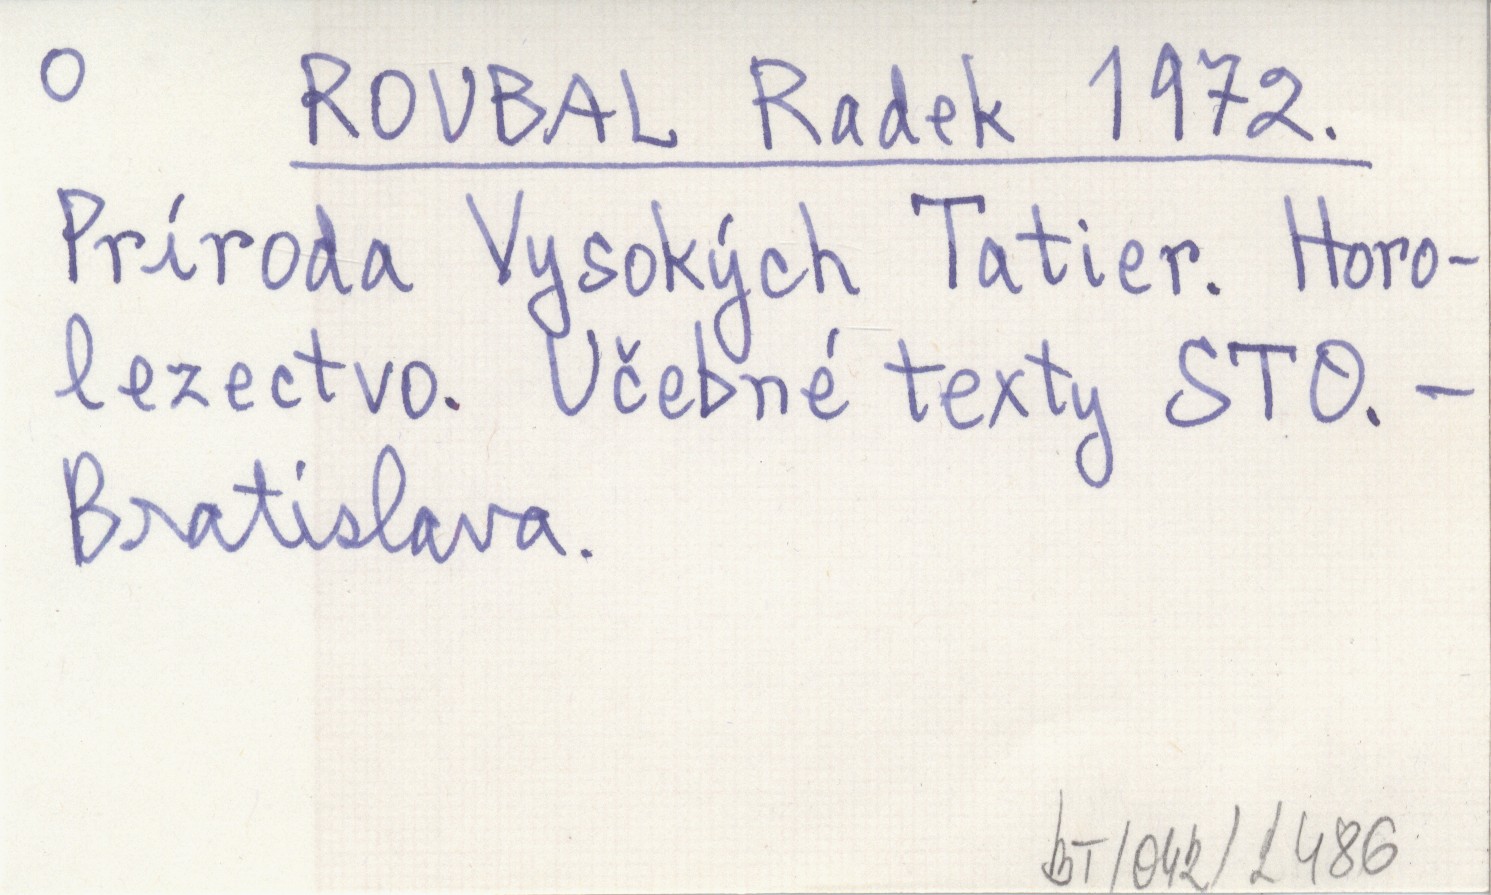 O ROUBAL Radek 1972.
Príroda Vysokých Tatier. Horo-
lezectvo. Učebné texty STO. -
Bratislava.
BT/042/1486